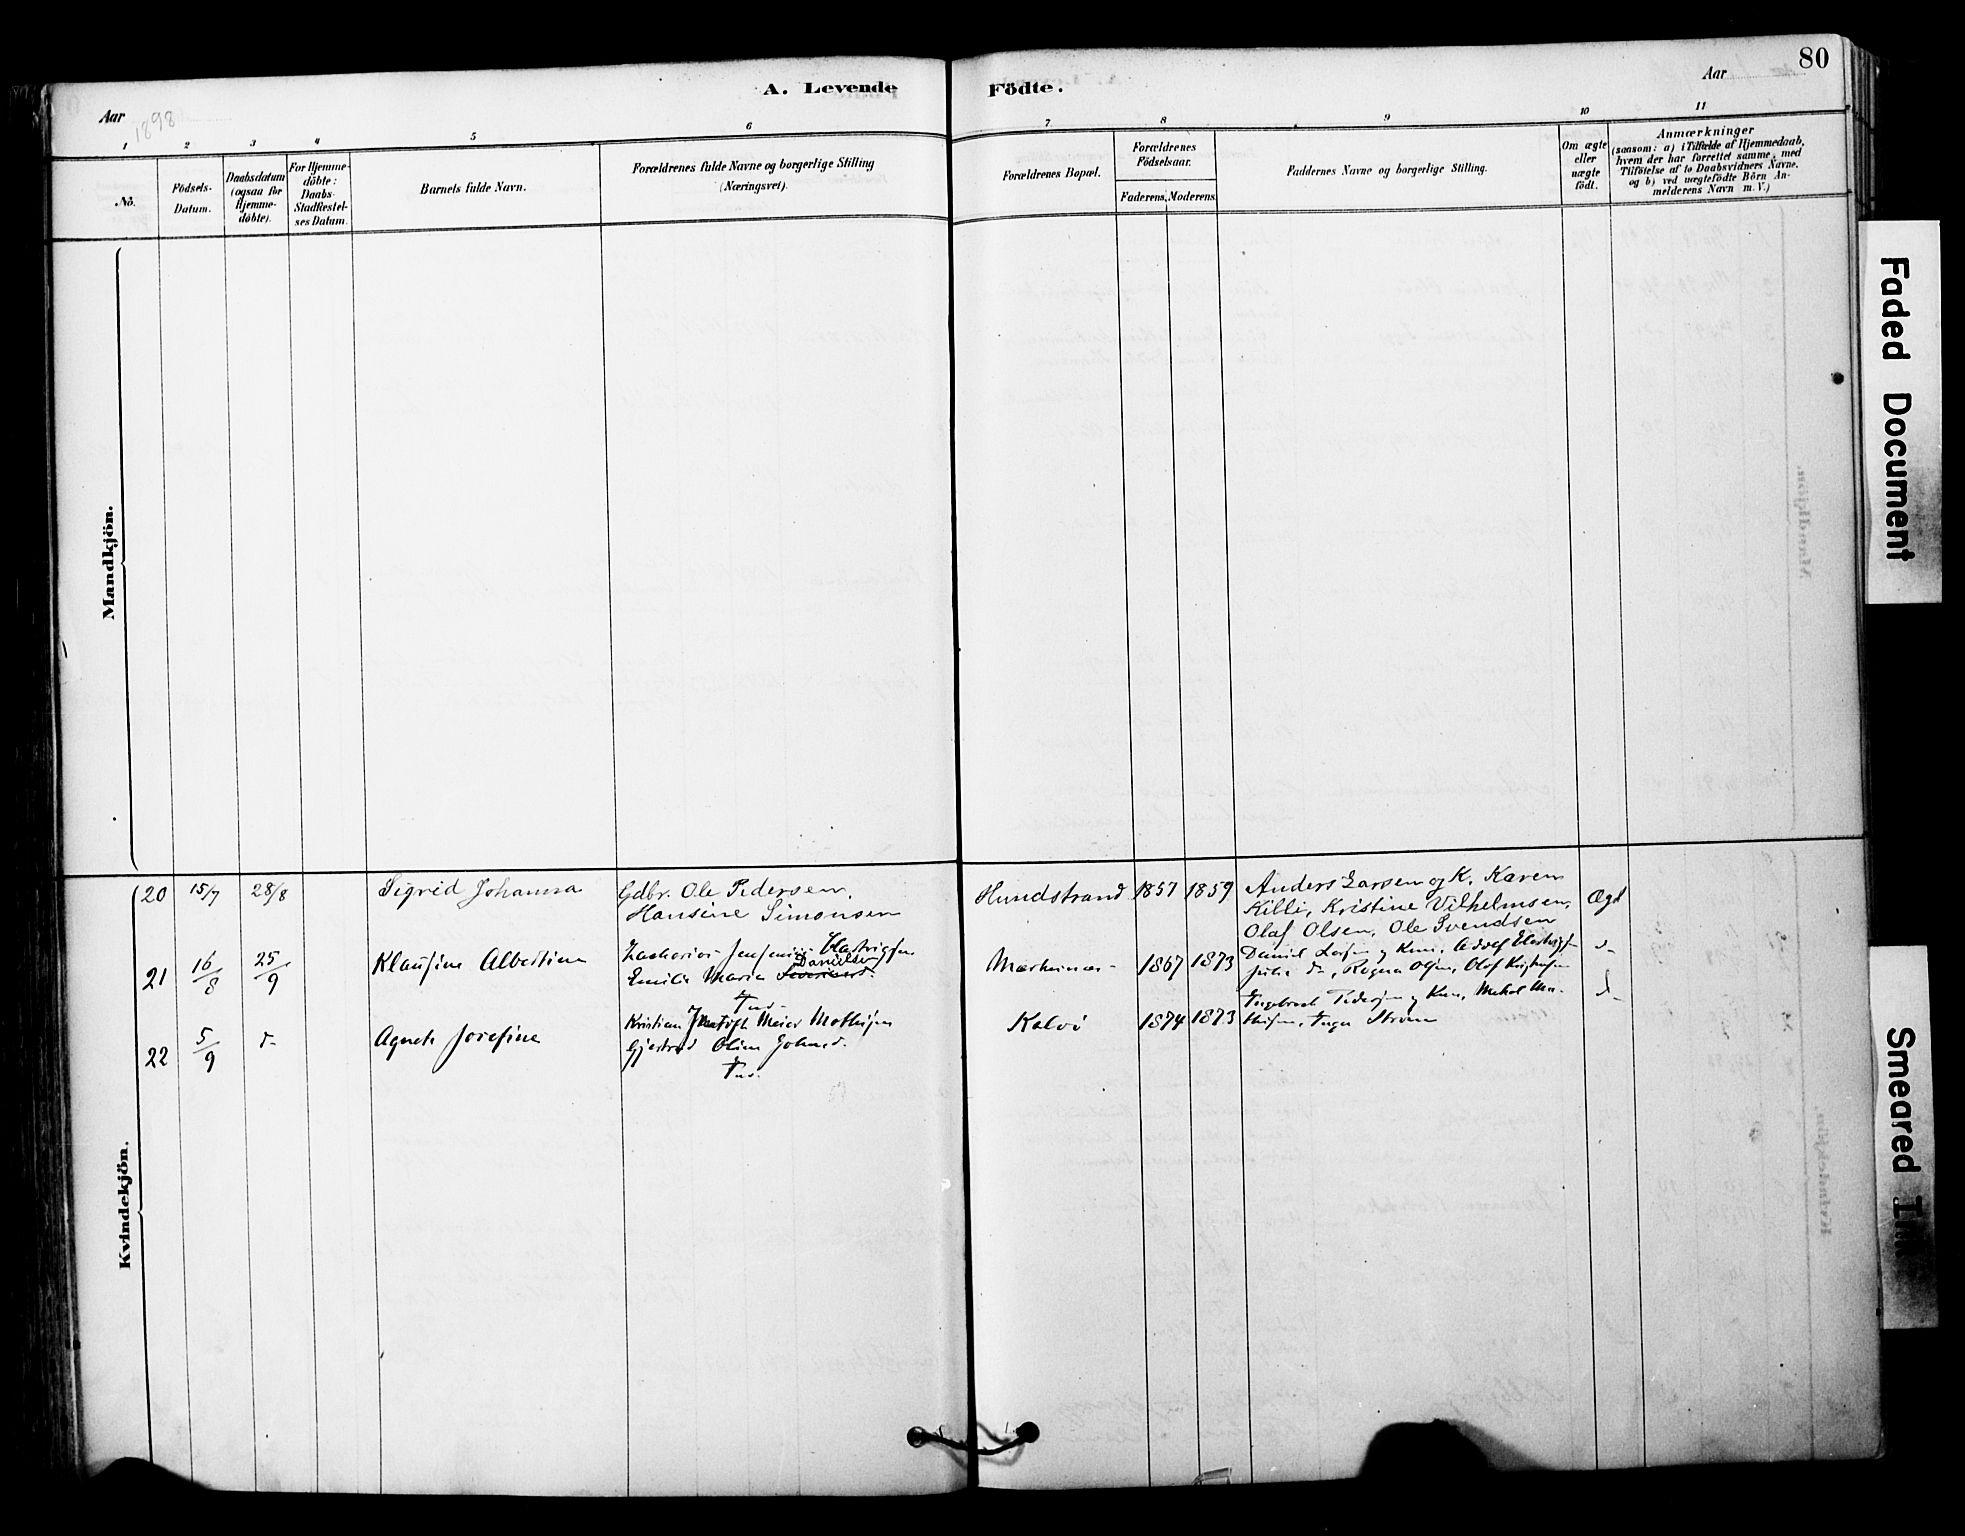 80
A. Levende Födte.
Aar 1898
Aar
1 2 3 4 5 6 7 8 9 10 11
No.
Födsels-
Datum.
Daabsdatum
(ogsaa for
Hjemme-
döbte).
For Hjemme-
döbte:
Daabs-
Stadfæstel-
ses Datum.
Barnets fulde Navn.
Forældrenes fulde Navne og borgerlige Stilling
(Næringsvei).
Forældrenes Bopæl.
Forældrenes
Födselsaar.
Faderens. Moderens.
Faddernes Navne og borgerlige Stilling.
Om ægte
eller
uægte
födt.
Anmærkninger
(saasom: a) i Tilfælde af Hjemmedaab,
hvem der har forrettet samme, med
Tilföielse af to Daabsvidners Navne.
og b) ved uægtefödte Börn An-
melderens Navn m. V.)
Mandkjön.
Kvindekjön.
20 15/7 28/8 Sigrid Johanna
Gdbr. Ole Pedersen,
Hansine Simonsen
Hundstrand 1857 1859
Anders Larsen og K. Karen
Killi, Kristine Vilhelmsen,
Olaf Olsen, Ole Svendsen
Ægt
21 16/8 25/9 Klausine Albertine
Zacharias Jensenius
Danielsen
Emilie Maria
1867 1873
Daniel Larsen og Kone, Adolf
d-
22 5/9 d- Agnete Josefine
Kristian Meier Mathisen
Olina
Kalvö 1874 1873
Ingebregt Pedersen og Kone,
Inga Ström
d-
Faded Document
Smeared Ink